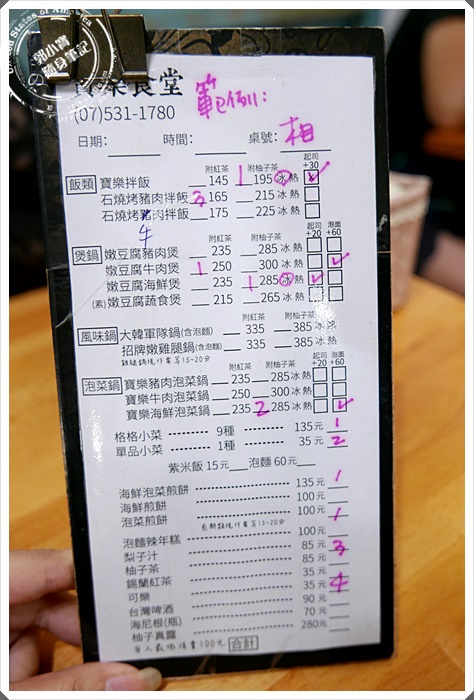 郭小寶
隨身筆記
寶樂食堂
(07)531-1780 範例:
日期: 時間: 桌號: 相
飯類 附紅茶 附柚子茶 起司+30
寶樂拌飯 145 1 195 冰 熱 ✓
石燒烤豬肉拌飯 3 165 215 冰 熱
石燒烤豬肉拌飯 175 225 冰 熱
牛
煲鍋 附紅茶 附柚子茶 起司+20 泡麵+60
嫩豆腐豬肉煲 235 285 冰 熱
嫩豆腐牛肉煲 1 250 300 冰 熱 ✓
嫩豆腐海鮮煲 235 1 285 冰 熱 ✓
(素)嫩豆腐蔬食煲 215 265 冰 熱
風味鍋 附紅茶 附柚子茶
大韓軍隊鍋(含泡麵) 335 385 冰 熱
招牌嫩雞腿鍋(含泡麵) 335 385 冰 熱
泡菜鍋 附紅茶 附柚子茶 起司+20 泡麵+60
寶樂豬肉泡菜鍋 235 285 冰 熱
寶樂牛肉泡菜鍋 250 300 冰 熱
寶樂海鮮泡菜鍋 235 2 285 冰 熱 ✓
格格小菜 9種 135元 1
單品小菜 1種 35元 2
紫米飯 15元 泡麵 60元
海鮮泡菜煎餅 135元 1
海鮮煎餅 100元
泡菜煎餅 100元 1
煎餅類現作需等15-20分
泡麵辣年糕 100元
梨子汁 85元 3
柚子茶 85元
錫蘭紅茶 35元
可樂 35元 4
台灣啤酒 90元
海尼根(瓶) 70元
柚子真露 280元
每人最低消費100元 合計